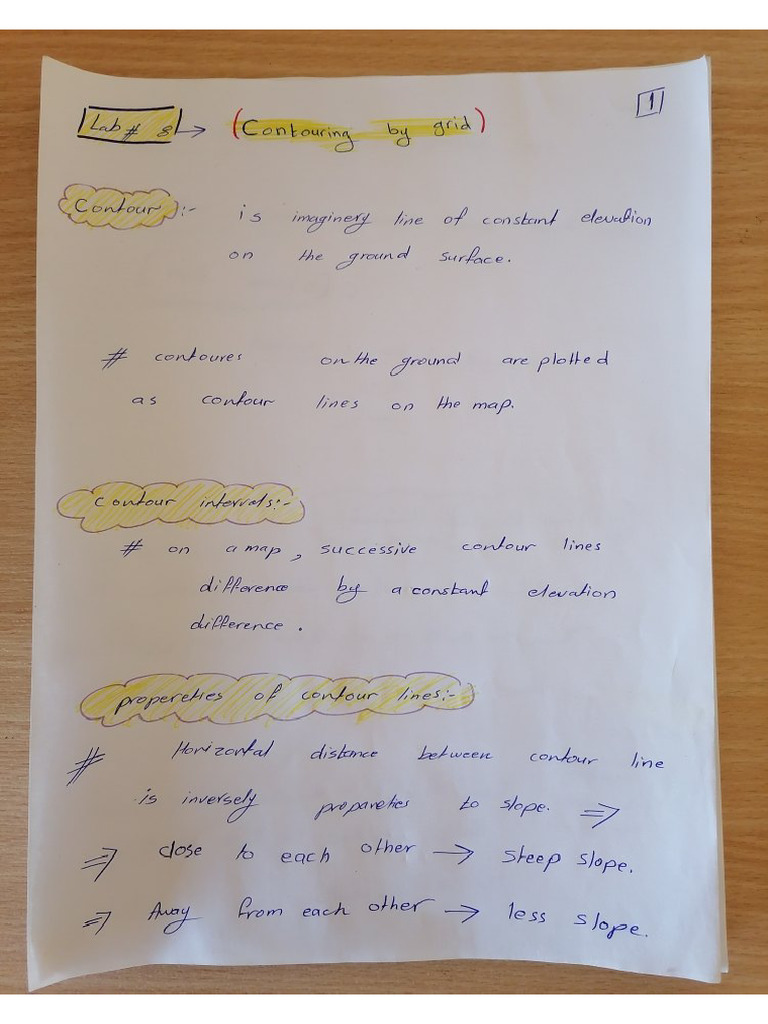 Lab # 8 → (Contouring by grid)
1
Contour :- is imaginery line of constant elevation
on the ground surface.
# contoures on the ground are plotted
as contour lines on the map.
contour intervals:-
# on a map, successive contour lines
difference by a constant elevation
difference.
propereties of contour lines:-
# Horizontal distance between contour line
is inversely propareties to slope. ⇒
⇒ close to each other → steep slope.
⇒ Away from each other → less slope.